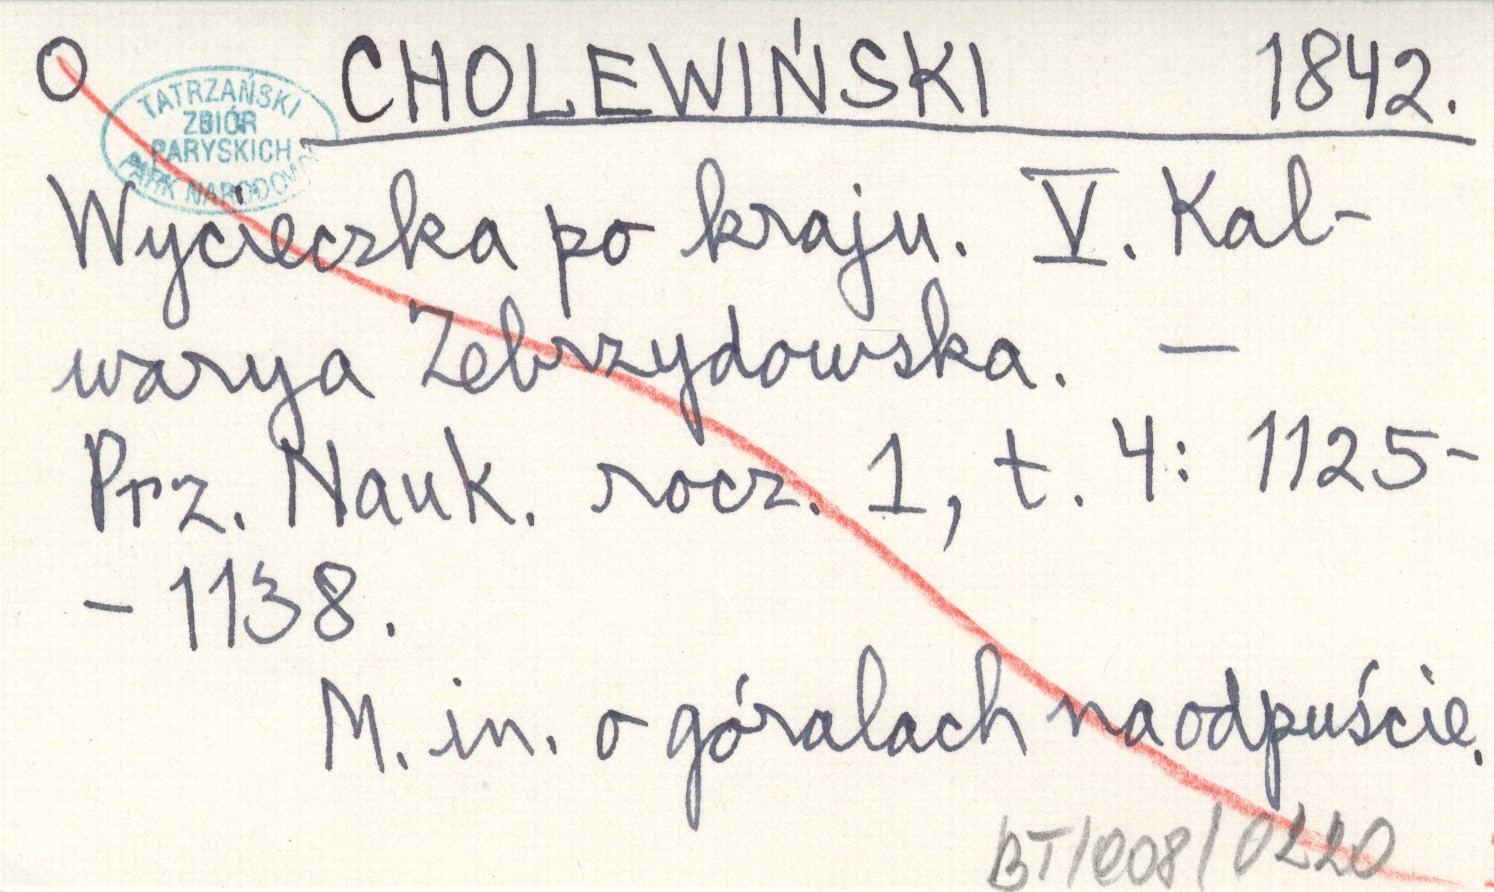 O CHOLEWIŃSKI 1842.
TATRZAŃSKI
ZBIÓR
PARYSKICH
PARK NARODOWY
Wycieczka po kraju. V. Kal-
warya Zebrzydowska. —
Prz. Nauk. rocz. 1, t. 4: 1125-
- 1138.
M. in. o góralach na odpuście.
BT/008/0220